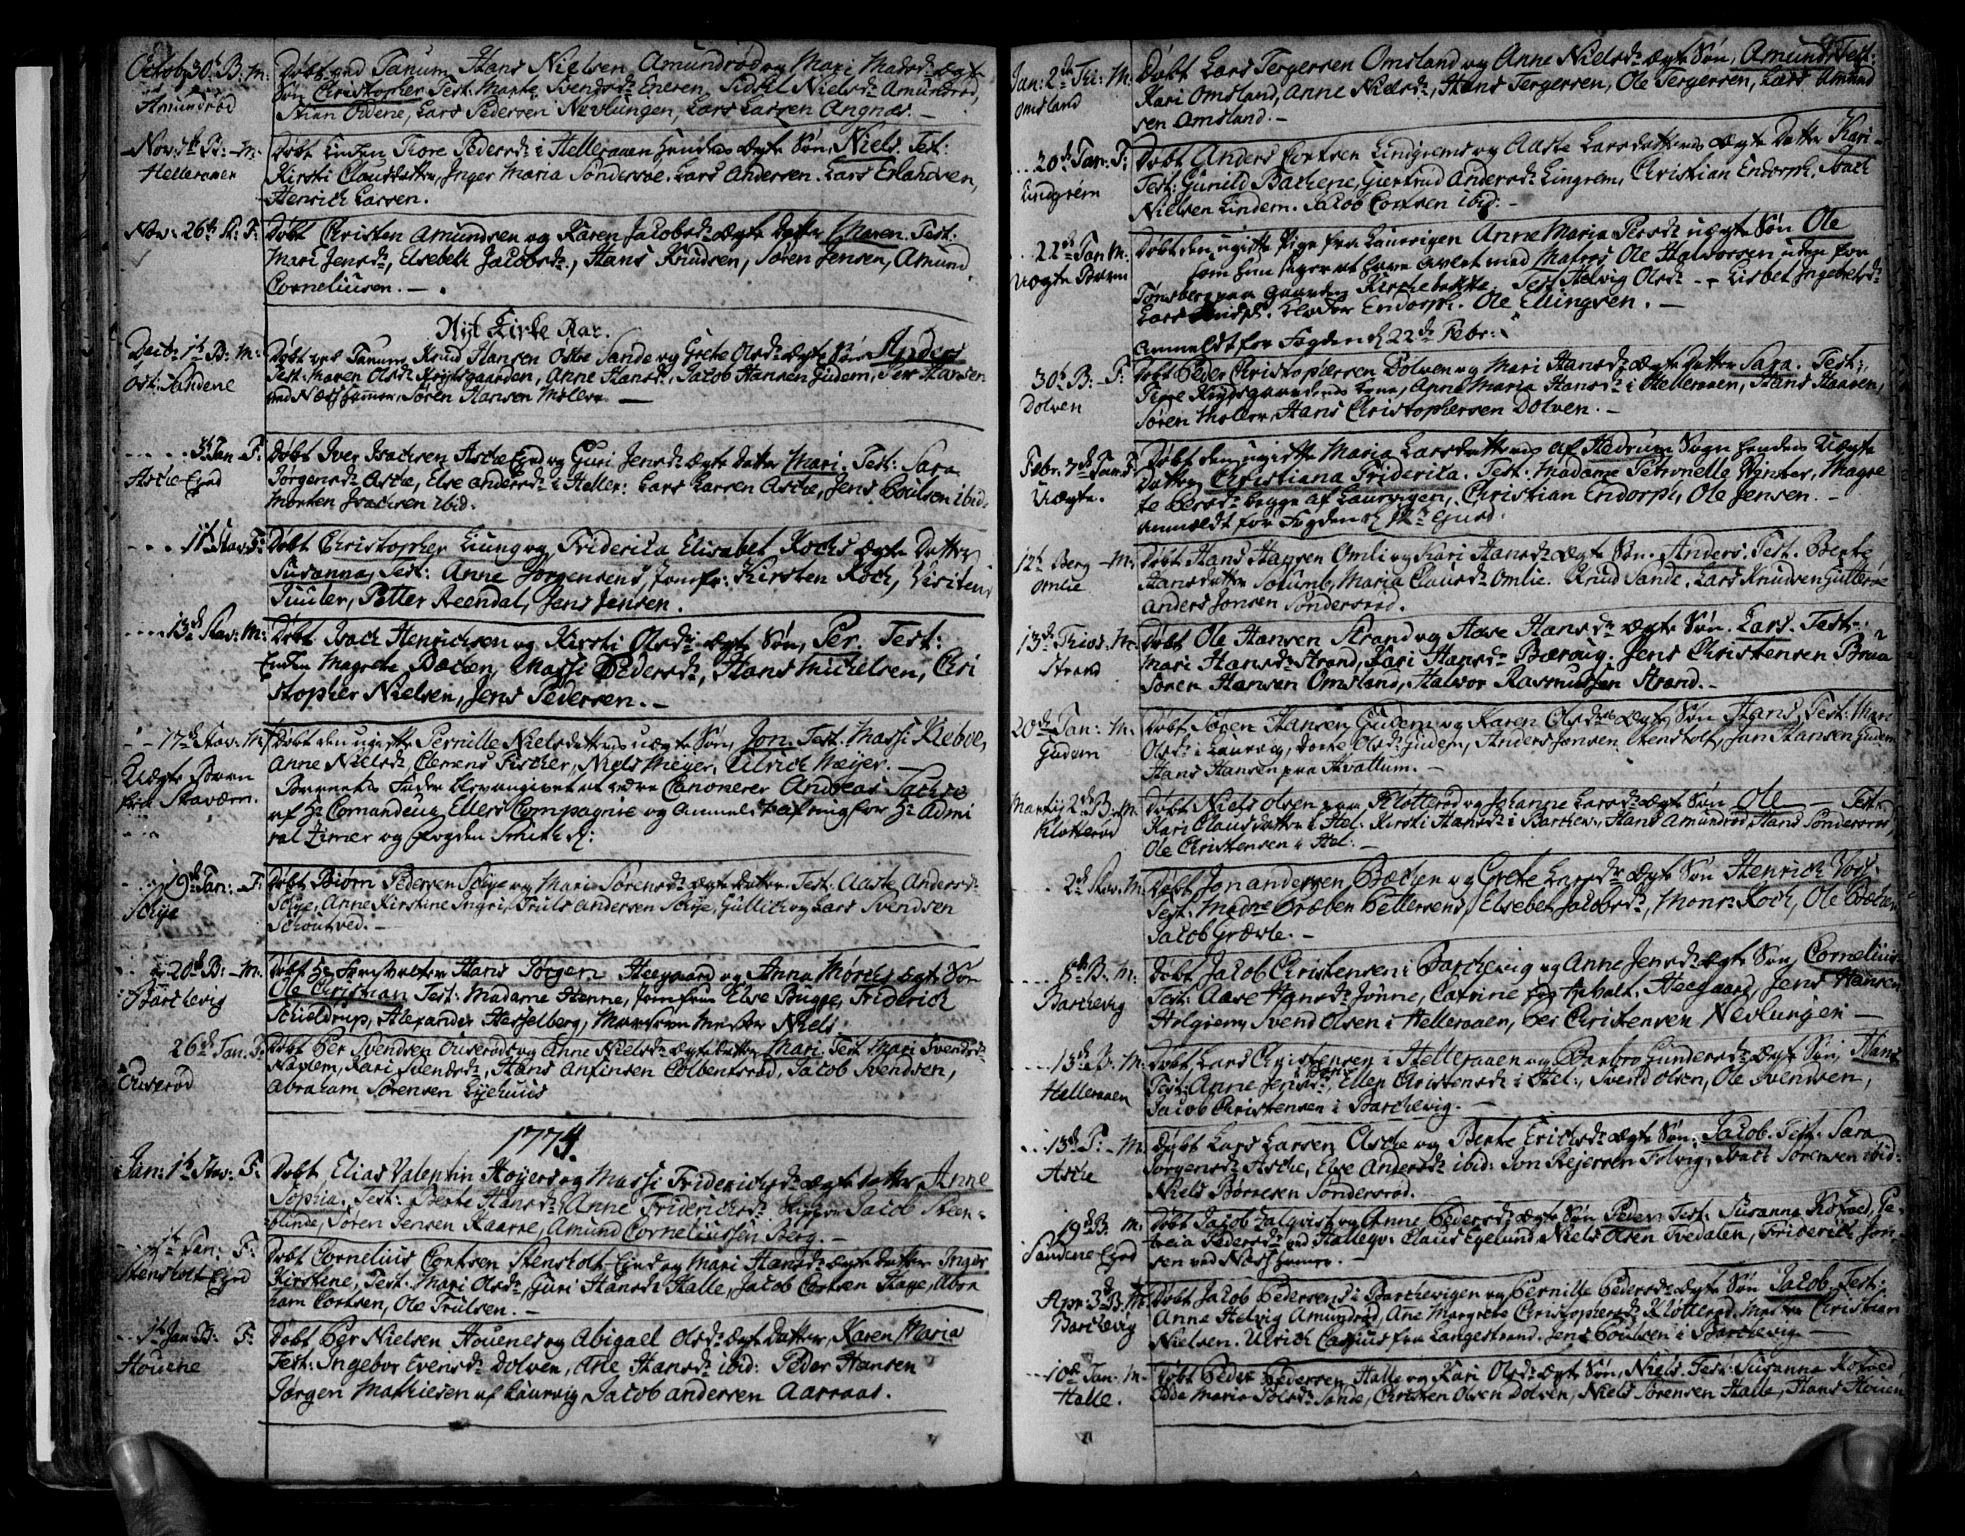 Octob: 30t B: M:
Amundrød
Døbt ved Tanum Hans Nielsen Amundrød og Mari Madsd: ægte
Søn Christopher Test: Marte Svendsd: Eneren, Sidsel Nielsd: Amundrød,
Stian Odene, Lars Pedersen Nevlungen, Lars Larsen Angnæs. —
Helleraaen
Døbt Tore Pedersd: i Helleraaen hendes ægte Søn, Niels. Test:
Kirsti Clausdatter, Inger Maria Sondersøe. Lars Andersen. Lars Erlandsen,
Henrich Larsen.
Nov: 26t F:
Døbt Christen Amundsen og Karen Jacobsd: ægte datter Maren. Test:
Mari Jensd:, Elsebeth Jacobsd:, Hans Knudsen, Søren Jensen, Amund
Corneliusen. —
Nyt Kirke Aar.
Dec: 1t B: M:
Ost: Sandene
Døbt ved Tanum Knud Hansen Østre Sande og Grete Olsd: ægte Søn Anders
Test: Maren Olsd: Krigsgaarden, Anne Hansd:, Jacob Hansen Gudem, Per Hansen
ved Næshamer, Søren Hansen Møller —
Jan F:
Asche Eyed
Døbt Iver Isachsen Asche Eyed og Guri Jensd: ægte datter Mari. Test: Sara
Jørgensd: Asche, Else Andersd: i Heller: Lars Larsen Asche, Jens Poulsen ibid:
Morten Isachsen ibid.
11t Stav: F:
Døbt Christopher Liung og Friderica Elisabet Kochs ægte Datter
Susanna, Test: Anne Jørgensens, Jomfr: Kirsten Koch,
Petter Reendal, Jens Jensen.
13de Stav: M:
Døbt Isach Henrichsen og Kirsti Olsd: ægte Søn, Per. Test:
Enken Magrete Bachen, Massi Pedersd:, Hans Michelsen, Chri
stopher Nielsen, Jens Pedersen. —
17de Stav: M:
Uægte Barn
fra Stavern.
Døbt den ugifte Pernille Nielsdatters uægte Søn, Jon. Test: Massi Kieboe,
Anne Nielsd: Clemens Fischer, Niels Meyer, Ulrich Meijer. —
Barnets Fader blev angivet at være Canonerer Andreas
af Hr Comandeur Ellers Compagnie og anmeldt af mig for Hr Admi
ral Zimer og fogden Smith
19de Jan: F:
Schye
Døbt Biørn Pedersen Schye og Mari Sørensd: ægte datter. Test: Aaste Andersd:
Schye, Anne Kirstine Ingri, Truls Andersen Schye, Gullich og Lars Svendsen
Schoutved. —
20de B: M.
Barchevig
Døbt Hr Forvalter Hans Jørgen Heegaard og Anna Mørchs ægte Søn
Ole Christian Test: Madame Henne, Jomfru Else Bugge, Friderich
Schieldrup, Alexander Hesselberg, Niels
26de Jan. F:
Ouserød
Døbt Per Svendsen Ouserøds og Anne Nielsd: ægte datter Mari. Test: Mari Svendsd:
Havlem, Kari Svendsd:, Hans Anfinsen Colbentsrød, Jacob Svendsen,
Abraham Sørensen Lyehuus
1774.
Jan: 1t Stav: F:
Døbt Elias Valentin Høyers og Massi Friderichsd: ægte datter Anne
Sophia. Test: Berte Hansd: Anne Friderichsd: Jacob Steen-
blinde, Søren Jensen Kaarre, Amund Corneliussen Berg. —
1t Jan: F:
Stensholt Eyed
Døbt Cornelius Cortsen Stensholt-Eyed og Mari Hansd: ægte datter Inger
Kirstine, Test: Mari Olsd:, Guri Hansd: Halle, Jacob Cortsen Hage, Abra
ham Cortsen, Ole Trulsen. —
1t Jan B: F:
Houene
Døbt Per Nielsen Houenes og Abigael Olsd: ægte datter, Karen Maria
Test: Ingebor Evensd: Dolven, Ane Hansd: ibid: Peder Hansen
Jørgen Mathiesen af Laurvig, Jacob Andersen Aarraas.
Jan: 2de M.
Omsland
Døbt Lars Tergersen Omsland og Anne Nielsd: ægte Søn, Amund, Test:
Kari Omsland, Anne Nielsd:, Hans Tergersen, Ole Tergersen, Lars Amund
sen Omsland. —
20de Jan. F:
Lindgrem
Døbt Anders Cortsen Lindgrems og Aaste Larsdatters ægte Datter Kari —
Test: Gunild Bachene, Giertrud Andersd: Lingrem, Christian Endorph. Isach
Nielsen Lindem. Jacob Cortsen ibid: —
22de Jan M.
Uægte Barn
Døbt den ugifte Pige fra Laurvigen Anne Maria Persd: uægte Søn Ole
som hun siger at have avlet med Matros Ole Halvorsen uden for
Tønsberg paa gaarden Kirchebakke. Test: Helvig Olsd: — Lisbet Ingebretsd:
Endorph. Ole Ellingsen. —
Anmeldt for Fogden d 22de Febr:
30t B: F:
Dolven
Døbt Peder Christophersen Dolven og Mari Hansd: ægte datter Sara. Test:
Anne Maria Hansd: i Helleraaen, Hans Haasen,
Søren Møller, Hans Christophersen Dolven. —
Febr: 7de Jan F:
Uægte.
Døbt den ugifte Maria Larsdatters af Hedrum Sogn hendes Uægte
Datter Christiana Friderica. Test: Madame Petronelle Winter, Magre
te Persd: begge af Laurvigen, Christian Endorph, Ole Jensen. —
anmeldt for Fogden
12t Berg M:
Omlie
Døbt Hans Hansen Omli og Kari Hansd: ægte Søn. Anders. Test. Berte
Hansdatter Solumb, Maria Clausd: Omlie. Knud Sande, Lars Knudsen
Anders Jonsen Søndersrød.
13de M.
Strand
Døbt Ole Hansen Strand og Aase Hansd: ægte Søn. Lars. Test:
Mari Hansd: Strand, Kari Hansd: Barvig. Jens Christensen Bruun
Søren Hansen Omsland, Halvor Rasmussen Strand. —
20de Jan: M:
Gudem
Døbt Søren Hansen Gudem og Karen Olsd: ægte Søn Hans, Test: Mari
Olsd: i Laurvig, Dorte Olsd: Gudem, Anders Jonsen Stensholt, Jan Hansen Gudem
Hans Hansen paa Hvattum. —
Martij 2de B: M
Klotterød
Døbt Niels Olsen paa Klotterød og Johanne Larsd: ægte Søn Ole — Test:
Kari Clausdatter i Hel: Kirsti Hansd: i Barchev., Hans Amundrød, Hans Søndersrød,
Ole Christensen i Hel: —
2de Stav: M.
Døbt Jon Andersen Bachen og Grete Larsd: ægte Søn Henrich
Test: Madme Præben Pettersens, Elsebet Jacobsd:, Monsr. Koch, Ole Bachen
Jacob Græsle. —
B. M.
Barchevig
Døbt Jacob Christensen i Barchevig og Anne Jensd: ægte Søn, Cornelius
Test: Aase Hansd: Jønne, Catrine hos Forvalt: Heegaard, Jens Hansen
Svend Olsen i Helleraaen, Per Christensen Nevlungen —
13de B: M:
Helleraaen
Døbt Lars Christensen i Helleraaen og Birebro Gundersd: ægte Søn, Hans
Test: Anne Jensd: Ellen Christensd: i Hel:, Svend Olsen, Ole Svendsen,
Jacob Christensen i Barchevig. —
13de F: M:
Asche
Døbt Lars Larsen Asche og Berte Erichsd: ægte Søn: Jacob. Test: Sara
Jørgensd: Asche, Else Andersd: ibid: Jon Rejersen Folvig, Isach Sørensen ibid:
Niels Børresen Søndersrød.
19de B. M:
Sandene Eyed
Døbt Jacob Zalqvist og Anne Pedersd: ægte Søn Peder Test: Susanna Kofoed, Pe-
Pedersd: ved Hallegv: Claus Egelund, Niels Olsen Tvedalen, Friderich Jon-
sen ved Næshamer. —
Apr: 3de B. M:
Barchevig
Døbt Jacob Pedersens i Barchevigen og Pernille Pedersd: ægte Søn Jacob. Test:
Anne Helvig Amundrød, Ane Margrete Christophersd: Klotterød. Christian
Nielsen. Ulrich Casius fra Langestrand. Jens Poulsen i Barchevig. —
10de Jan. M:
Halle.
Døbt Peder Pedersen Halle og Kari Olsd: ægte Søn, Niels. Test: Susanna Kofoed
Edde Maria Sande, Christen Olsen Dolven, Niels Sørensen Halle, Hans Houen